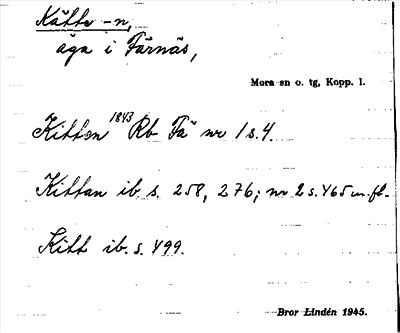 Kätte -n,
äga i Färnäs,
Mora sn o. tg, Kopp. l.
Kitten 1843 Rb Fä nr 1 s. 4.
Kittan ib. s. 258, 276; nr 2 s. 465 m. fl.
Kitt ib. s. 499.
Bror Lindén 1945.